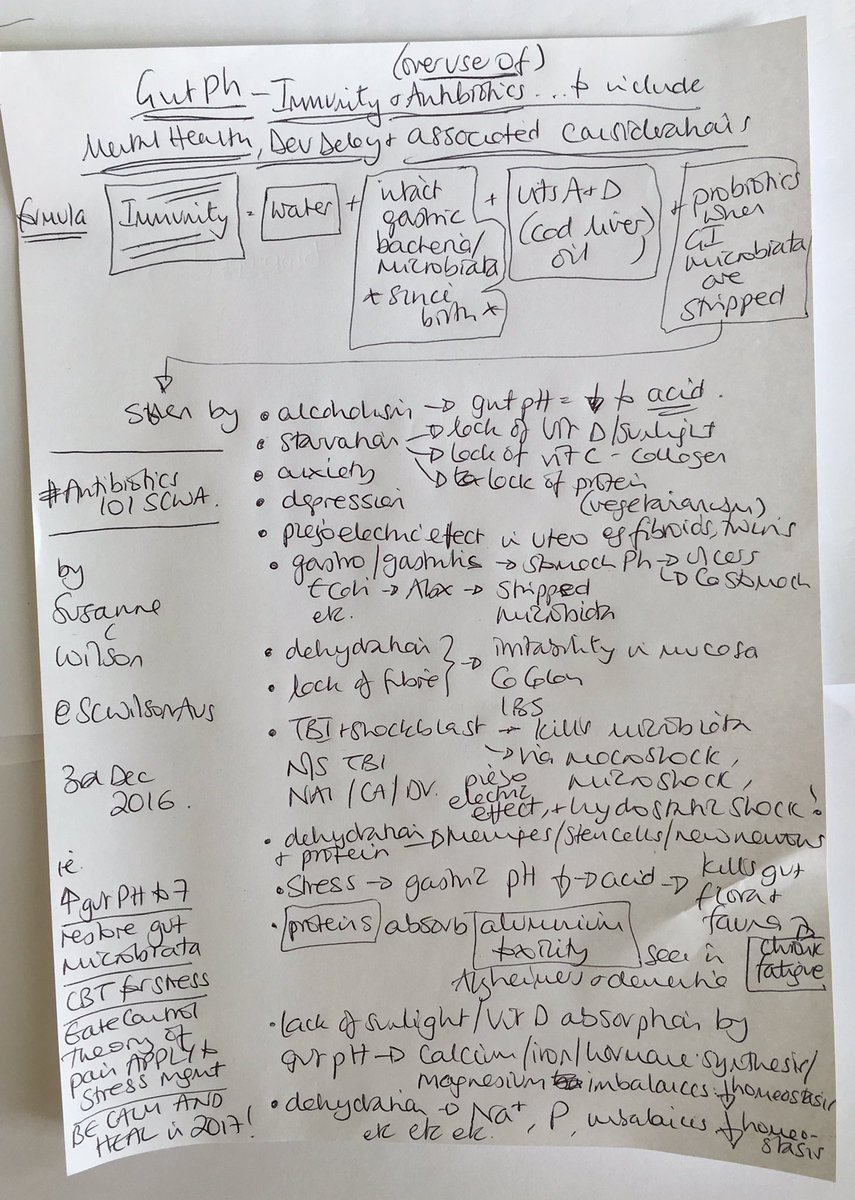 (overuse of)
Gut Ph - Immunity & Antibiotics ... to include
Mental Health, Dev Delay + associated considerations
formula
Immunity = water +
intact
gastric
bacteria/
microbiata
* since
birth *
+
vits A + D
(cod liver)
oil
+
probiotics
when
GI
microbiata
are
stripped
Stolen by
• alcoholism → gut pH = ↓ to acid.
• starvation → lack of Vit D/sunlight
→ lack of vit C - collagen
• anxiety
→ lack of protein
• depression
(vegetarianism)
• piezoelectric effect in utero eg fibroids, twins
• gastro/gastritis → stomach Ph → ulcess
↳ Ca Stomach
E Coli → Abx → stripped
etc.
microbiota
• dehydration } → irritability in mucosa
• lack of fibre
Ca Colon
IBS
• TBI + shockblast → kills microbiota
N/S TBI → via macroshock,
NAI / CA / DV.
piezo
electric
effect,
microshock,
+ hydostatic shock!
• dehydration → Meninges/stem cells/new neurons
+ protein
• Stress → gastric pH ↓ → acid → kills gut
flora +
fauna
• proteins absorb aluminium
toxility
seen in
Alzheimers + dementia
chronic
fatigue
• lack of sunlight/Vit D absorption by
gut pH → calcium/iron/hormone synthesis/
magnesium imbalances ↓ homeostasis
• dehydration → Na+, P, imbalances ↓ homeo-
etc etc etc.
stasis
#Antibiotics
101 SCWA.
by
Susanne
C
Wilson
@SCWilsonAus
3rd Dec
2016.
ie.
↑ gut PH to 7
restore gut
microbiata
CBT for stress
Gate Control
Theory of
pain APPLY to
Stress mgmt
BE CALM AND
HEAL in 2017!